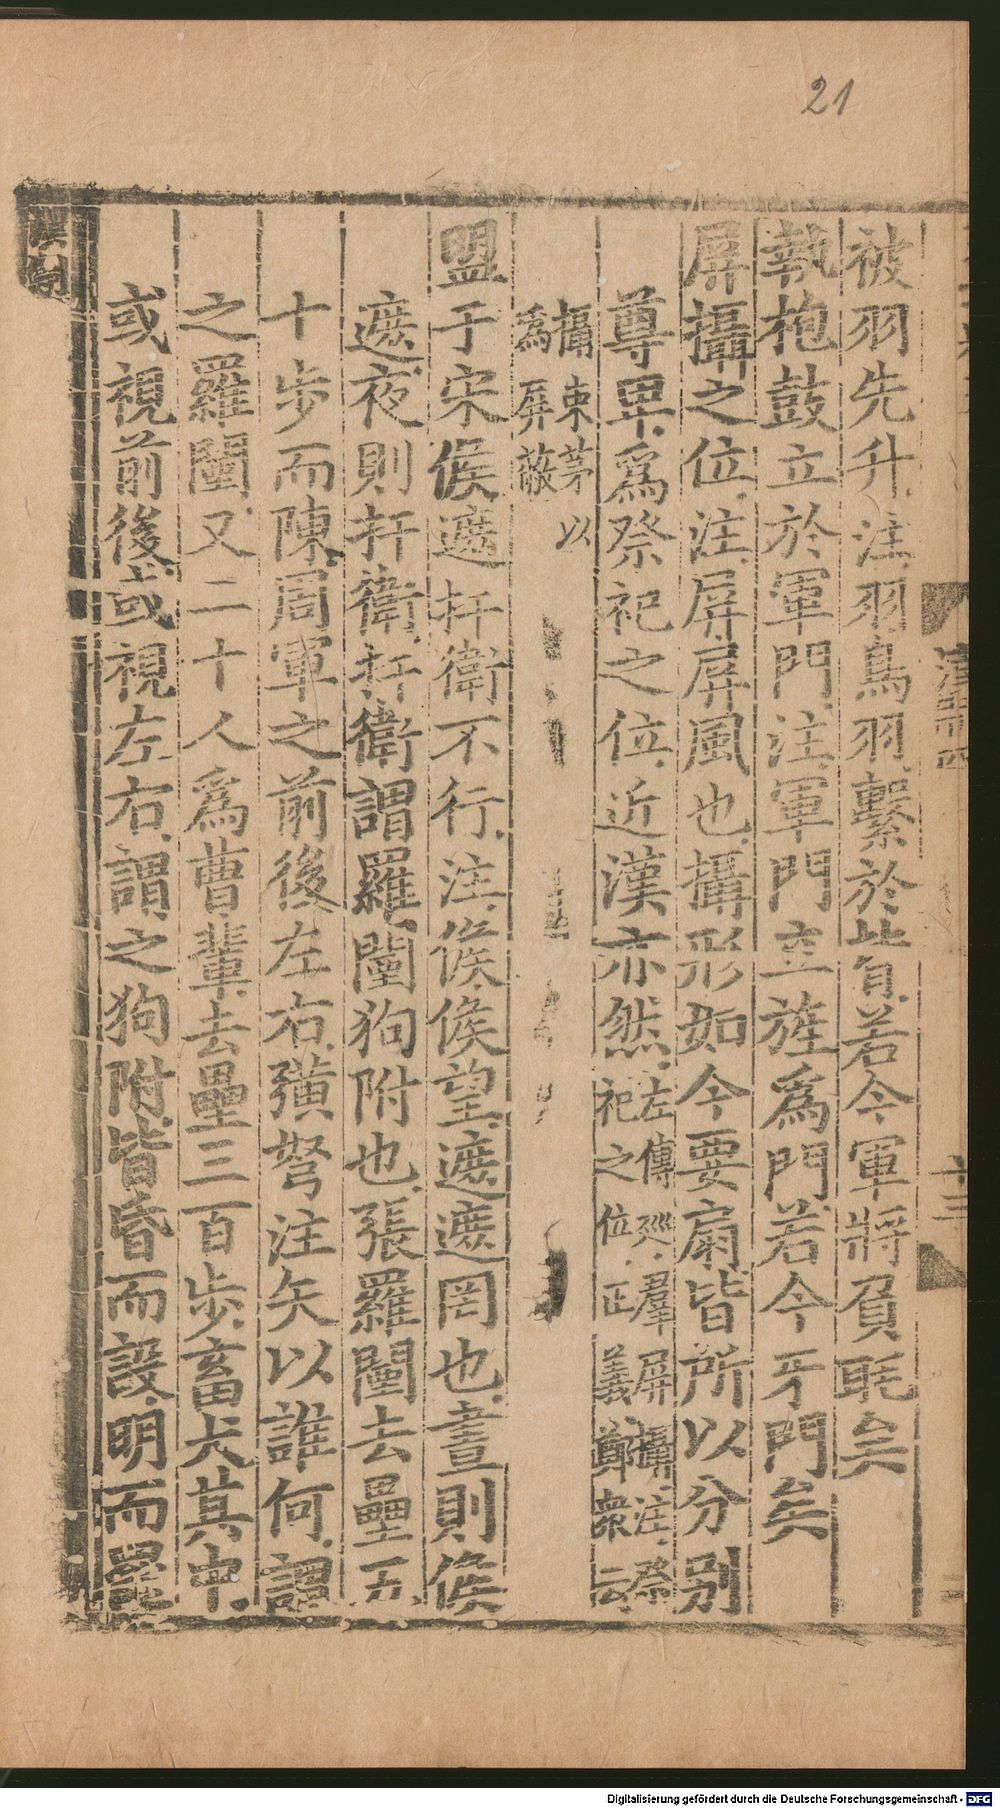 21
被羽先升注羽鳥羽繫於背若今軍將負毦矣
執枹鼓立於軍門注軍門立旌爲門若今牙門矣
屏攝之位注屏屏風也攝形如今要扇皆所以分別
尊卑爲祭祀之位近漢亦然左傳巡羣屏攝注祭
祀之位正義鄭衆云
攝束茅以
爲屏蔽
盟于宋候遮扞衛不行注候候望遮遮罔也晝則候
遮夜則扞衛扞衛謂羅闉狗附也張羅闉去壘五
十步而陳周軍之前後左右彍弩注矢以誰何謂
之羅闉又二十人爲曹輩去壘三百步畜犬其中
或視前後或視左右謂之狗附皆昏而設明而罷
漢制
漢制四
十三
Digitalisierung gefördert durch die Deutsche Forschungsgemeinschaft - DFG